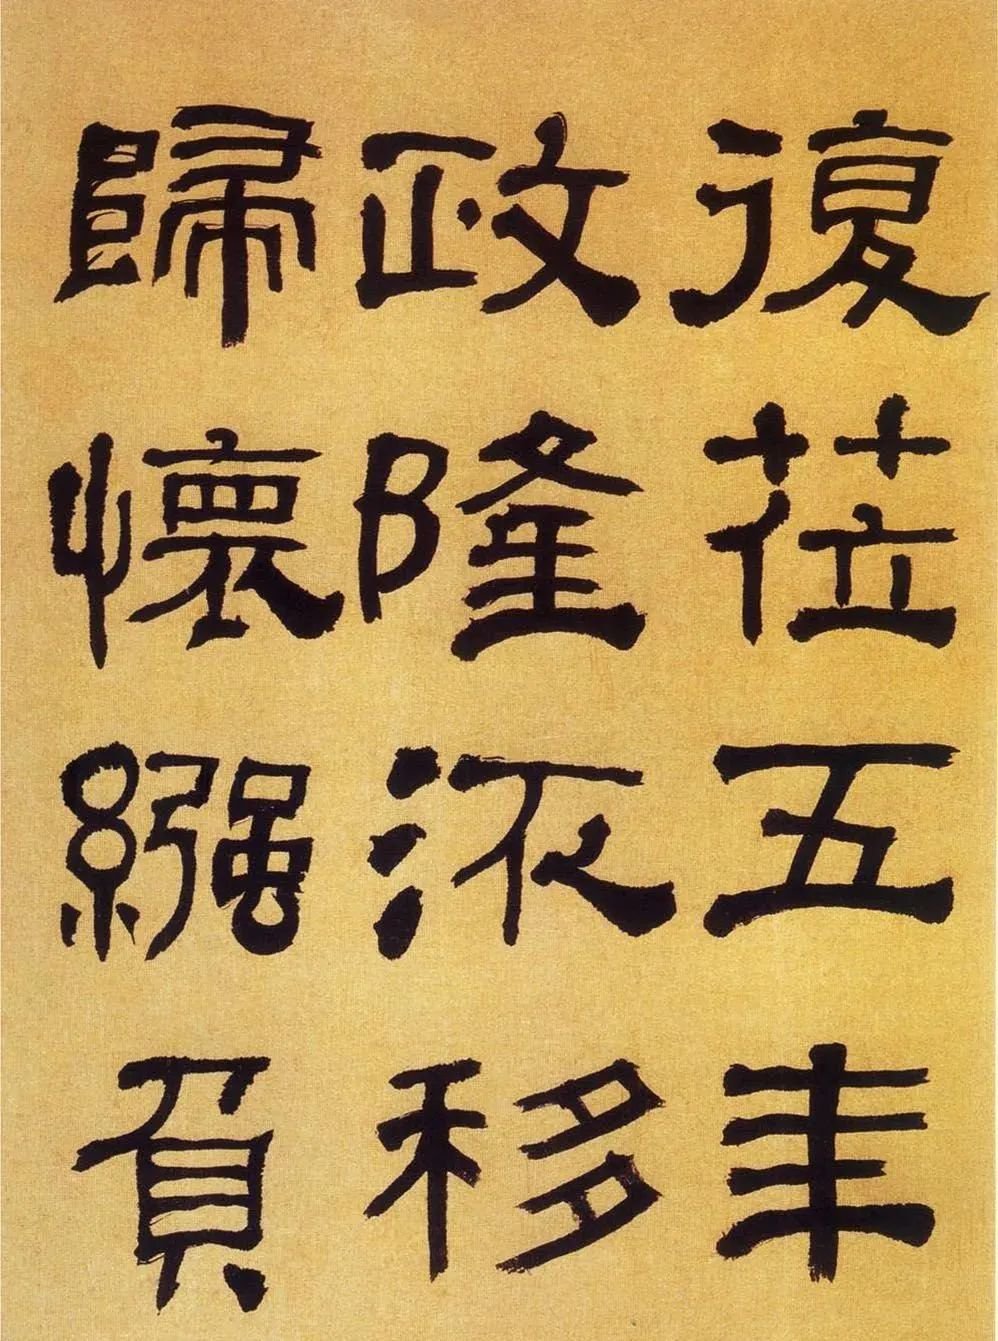 復莅五年
政隆派移
歸懷繦負